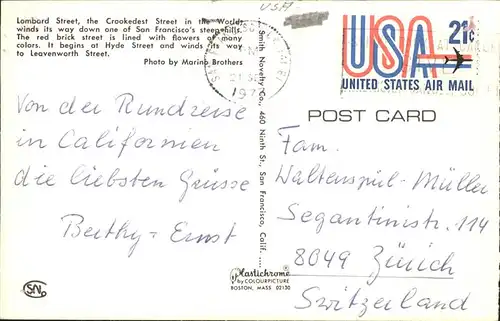 USA
Lombard Street, the Crookedest Street in the World,
winds its way down one of San Francisco's steep hills.
The red brick street is lined with flowers of many
colors. It begins at Hyde Street and winds its way
to Leavenworth Street.
Photo by Marino Brothers
Von der Rundreise
in Californien
die liebsten Grüsse
Berthy - Ernst
SNC
Smith Novelty Co., 460 Ninth St., San Francisco, Calif.
Plastichrome®
by COLOURPICTURE
BOSTON, MASS. 02130
USA 21¢
UNITED STATES AIR MAIL
POST CARD
Fam.
Waltenspül-Müller
Segantinistr. 114
8049 Zürich
Switzerland